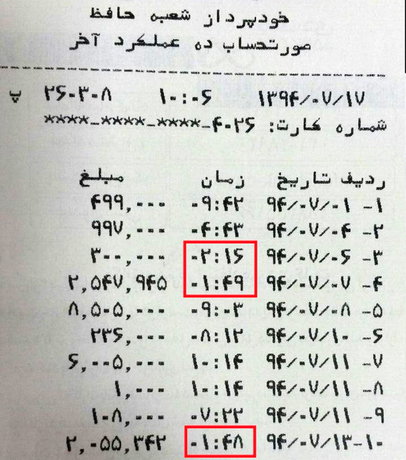 خودپرداز شعبه حافظ
صورتحساب ده عملکرد آخر
۱۳۹۴/۰۷/۱۷ ۱۰:۰۶ ۲۶۰۳۰۸ پ
شماره کارت: ۴۰۲۶-****-****-****
ردیف تاریخ زمان مبلغ
۱- ۹۴/۰۷/۰۱ ۰۹:۴۲ ۴۹۹,۰۰۰
۲- ۹۴/۰۷/۰۴ ۰۴:۴۳ ۹۹۷,۰۰۰
۳- ۹۴/۰۷/۰۶ ۰۲:۱۶ ۳۰۰,۰۰۰
۴- ۹۴/۰۷/۰۷ ۰۱:۴۹ ۲,۵۴۷,۹۴۵
۵- ۹۴/۰۷/۰۸ ۰۹:۰۳ ۸,۵۰۵,۰۰۰
۶- ۹۴/۰۷/۱۰ ۰۸:۱۲ ۲۳۶,۰۰۰
۷- ۹۴/۰۷/۱۱ ۱۰:۱۴ ۶,۰۰۵,۰۰۰
۸- ۹۴/۰۷/۱۱ ۱۰:۱۴ ۱,۰۰۰
۹- ۹۴/۰۷/۱۱ ۰۷:۲۲ ۱۰۸,۰۰۰
۱۰- ۹۴/۰۷/۱۳ ۰۱:۴۸ ۲,۰۵۵,۳۴۲